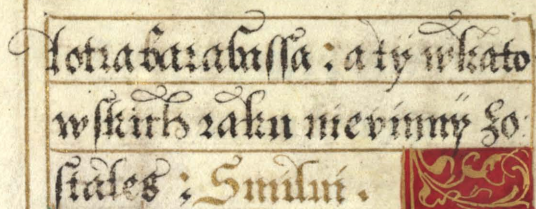 lotra barabassa : a ty w kato
wskich raku nievinny zo
stales : Smilui .